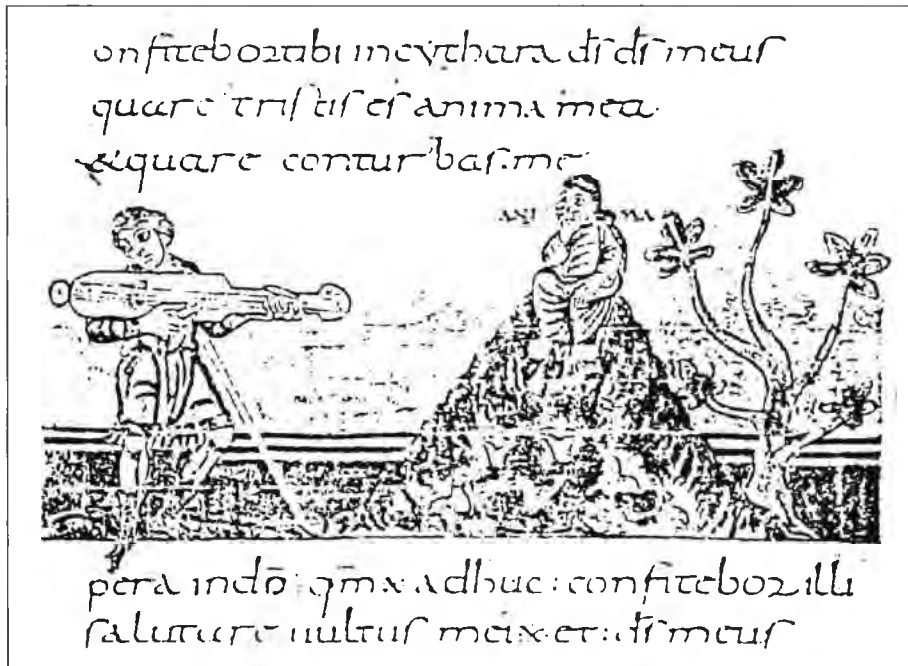 onfitebor tibi incythara d̄s d̄s meus
quare tristis es anima mea.
& quare conturbas.me
ANI MA
pera indō qm̄ adhuc : confitebor illi
salutare uultus mei et : d̄s meus